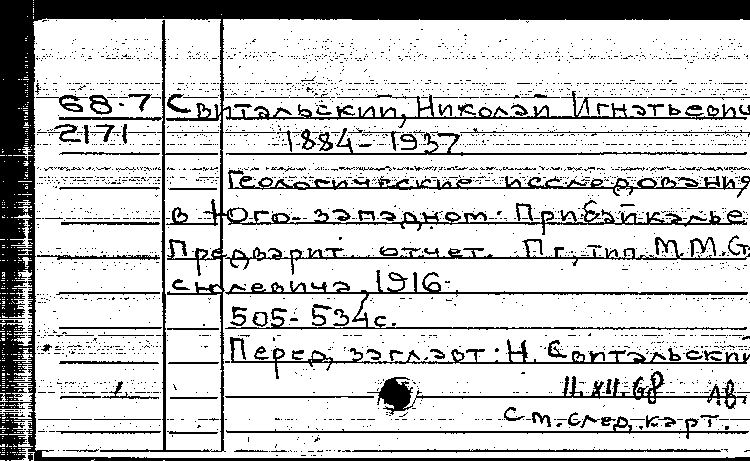 68-7 Свитальский, Николай Игнатьевич
2171
1884-1937
Геологические исследования
в Юго-западном Прибайкалье
Предварит. отчет. Пг, тип. М.М.Ста
сюлевича, 1916.
505-534 с.
Перед загл. авт: Н. Свитальский
11.XII.68 1в.
См. след. карт.